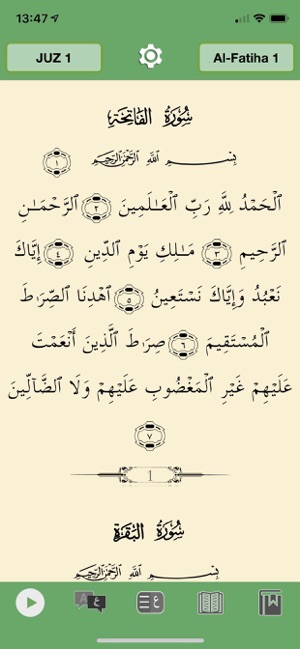 13:47
JUZ 1
Al-Fatiha 1
سُورَةُ الفَاتِحَة
بِسْمِ اللَّهِ الرَّحْمَٰنِ الرَّحِيمِ ١
الْحَمْدُ لِلَّهِ رَبِّ الْعَـٰلَمِينَ ٢ الرَّحْمَـٰنِ
الرَّحِيمِ ٣ مَـٰلِكِ يَوْمِ الدِّينِ ٤ إِيَّاكَ
نَعْبُدُ وَإِيَّاكَ نَسْتَعِينُ ٥ اهْدِنَا الصِّرَٰطَ
الْمُسْتَقِيمَ ٦ صِرَٰطَ الَّذِينَ أَنْعَمْتَ
عَلَيْهِمْ غَيْرِ الْمَغْضُوبِ عَلَيْهِمْ وَلَا الضَّآلِّينَ
٧
1
سُورَةُ البَقَرَة
بِسْمِ اللَّهِ الرَّحْمَٰنِ الرَّحِيمِ
A ع
ع